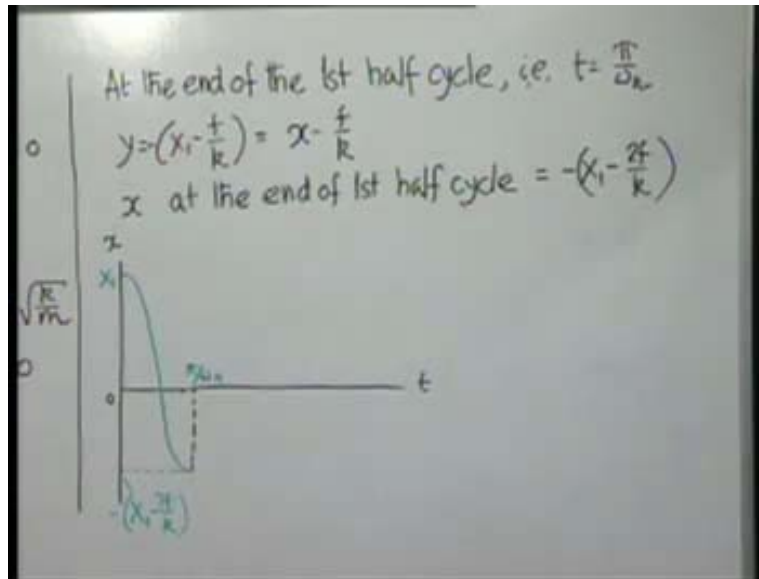 At the end of the 1st half cycle, i.e. t = π/ωn
y = -(X₁ - f/k) = x - f/k
x at the end of 1st half cycle = -(X₁ - 2f/k)
0
x
X₁
√(k/m)
π/ωn
0
t
0
-(X₁ - 2f/k)